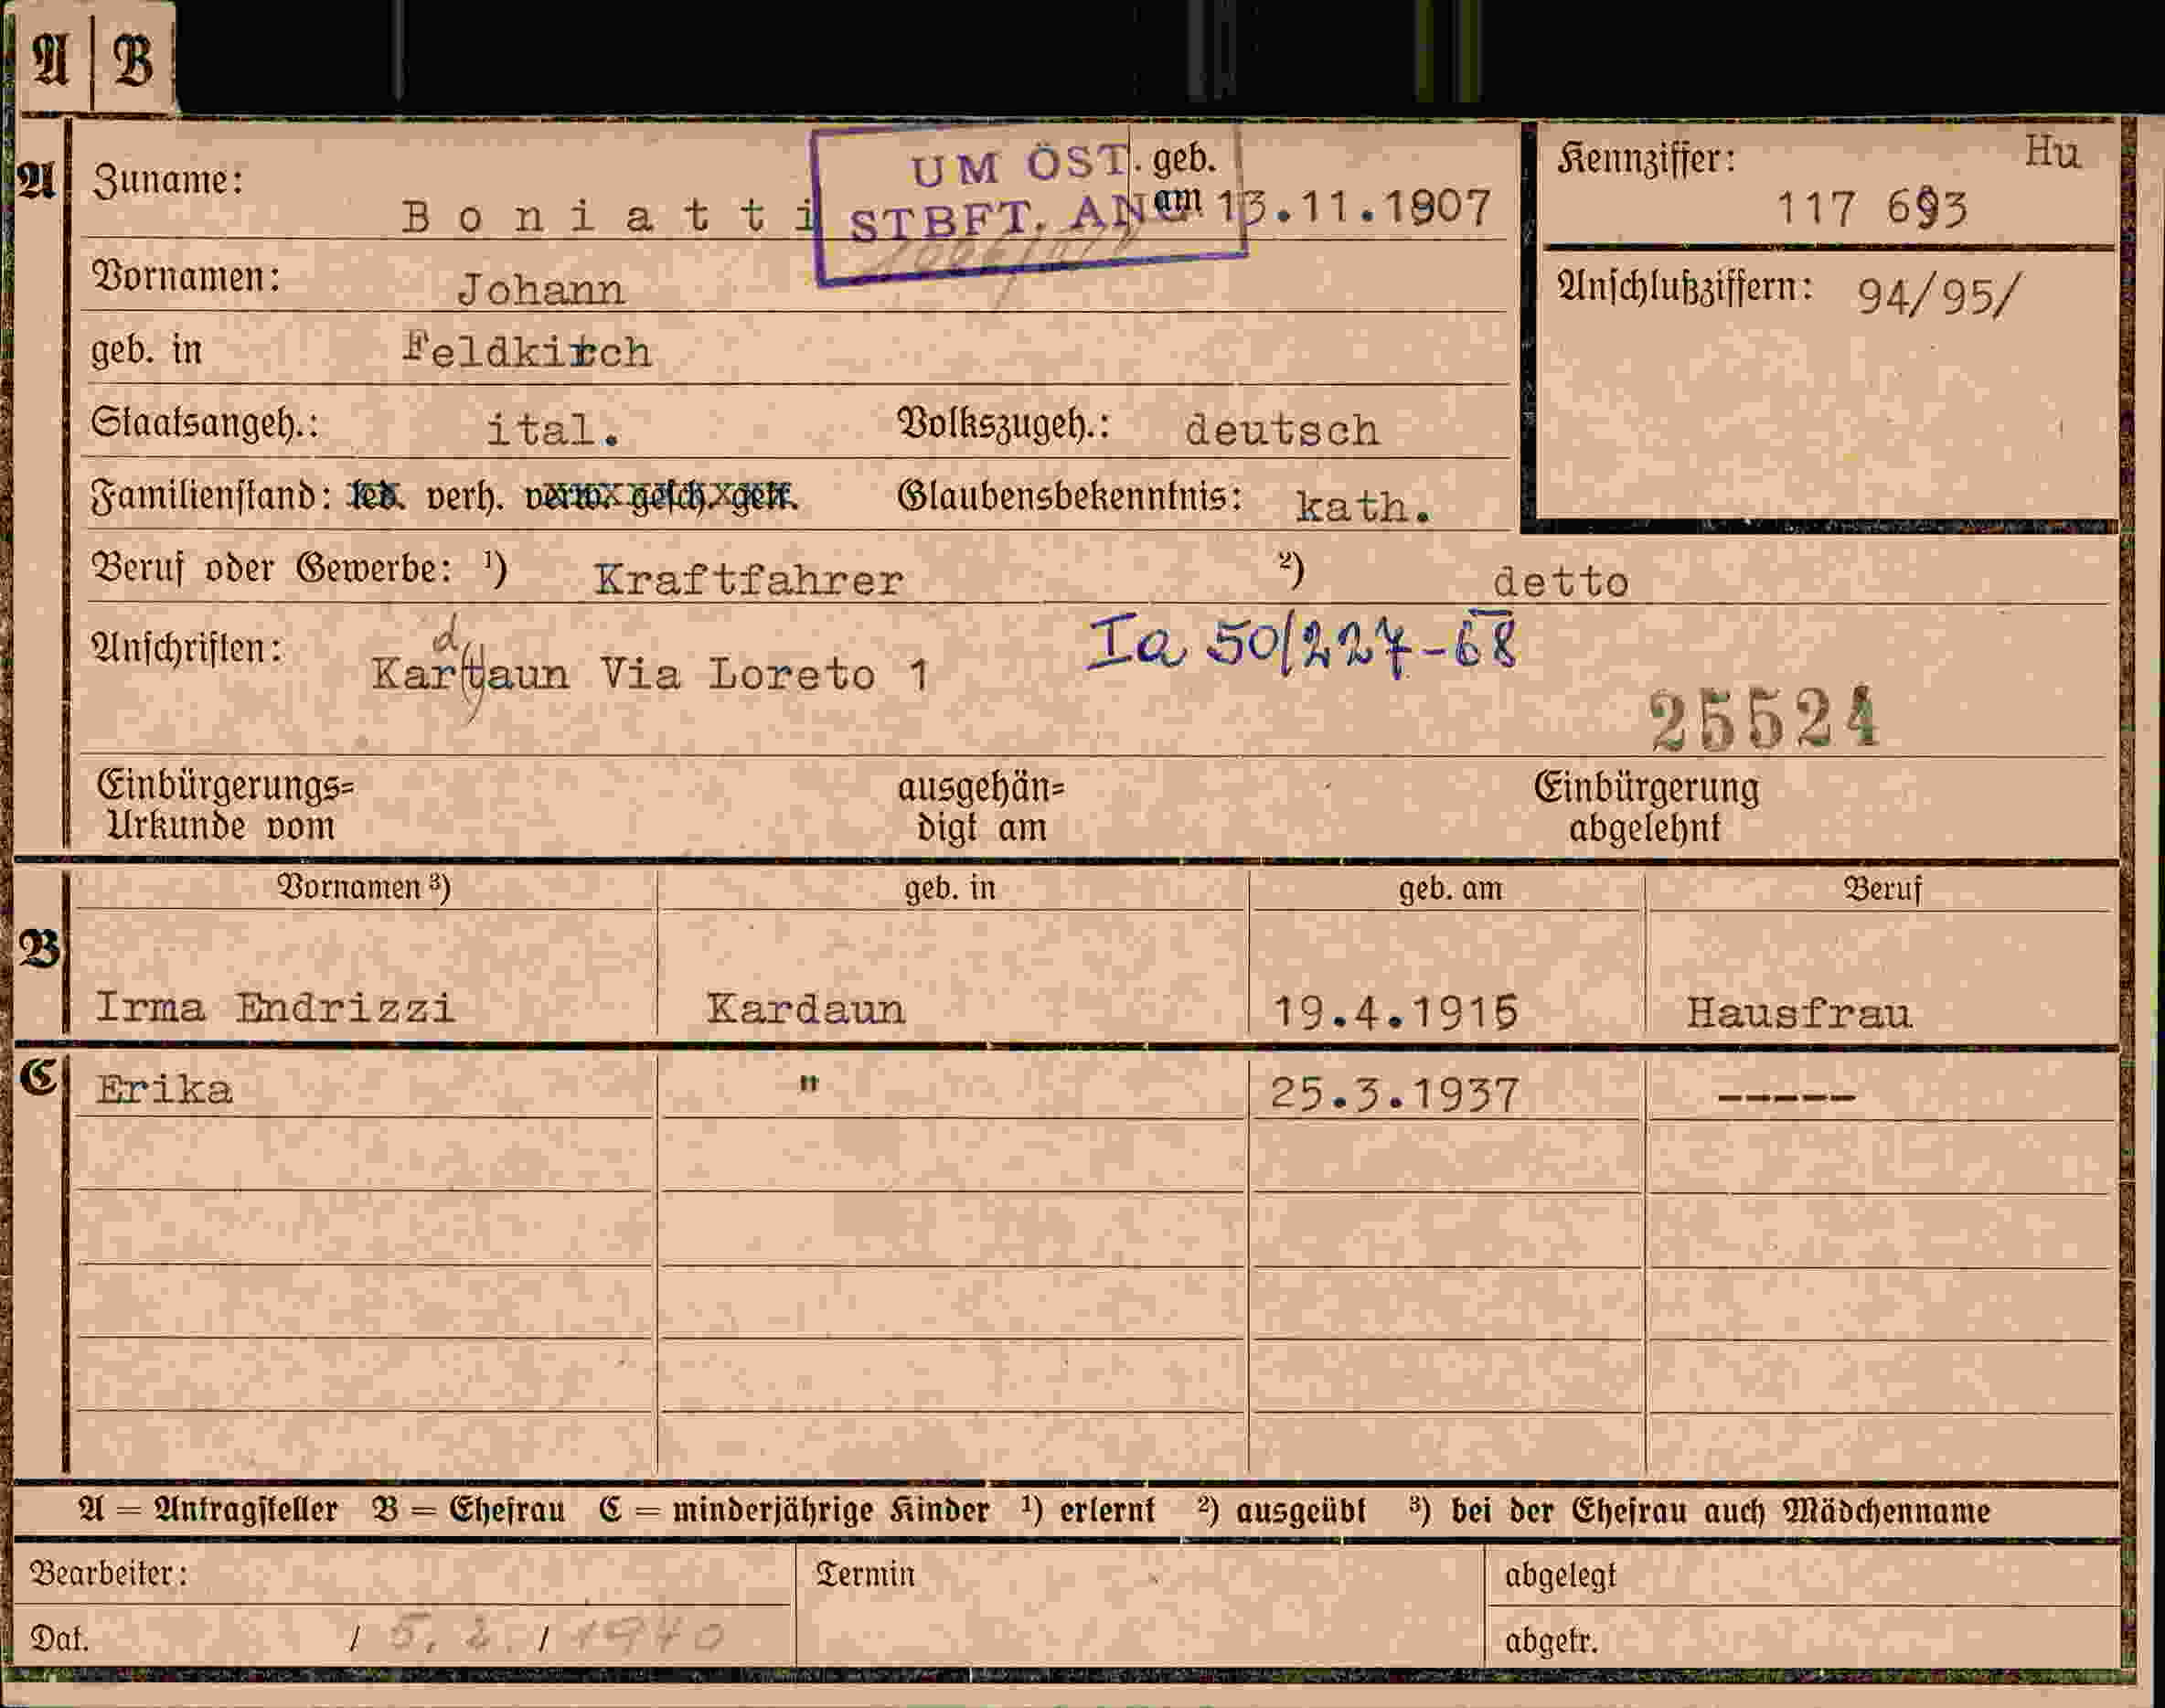 A | B
A Zuname: Boniatti geb. am 13.11.1907
UM ÖST.
STBFT. ANG.
Kennziffer: Hu
117 693
Vornamen: Johann
Anschlußziffern: 94/95/
geb. in Feldkirch
Staatsangeh.: ital. Volkszugeh.: deutsch
Familienstand: led. verh. verw. gesch. getr. Glaubensbekenntnis: kath.
Beruf oder Gewerbe: ¹) Kraftfahrer ²) detto
d
Anschriften: Kartaun Via Loreto 1 Ia 50/227-68
25524
Einbürgerungs= ausgehän= Einbürgerung
Urkunde vom digt am abgelehnt
Vornamen ³) geb. in geb. am Beruf
B Irma Endrizzi Kardaun 19.4.1915 Hausfrau
C Erika " 25.3.1937 -----
A = Antragsteller B = Ehefrau C = minderjährige Kinder ¹) erlernt ²) ausgeübt ³) bei der Ehefrau auch Mädchenname
Bearbeiter: Termin abgelegt
Dat. / 5. 2. / 1940 abgetr.